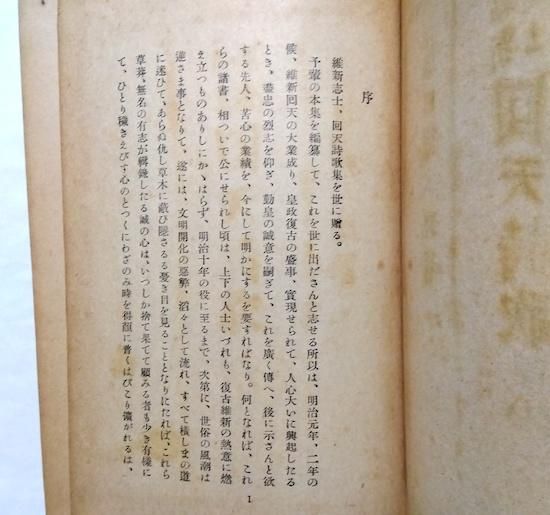 序
維新志士、回天詩歌集を世に贈る。
予輩の本集を編纂して、これを世に出ださんと志せる所以は、明治元年、二年の
候、維新回天の大業成り、皇政復古の盛事、實現せられて、人心大いに興起したる
とき、盡忠の烈志を仰ぎ、勤皇の誠意を嗣ぎて、これを廣く傳へ、後に示さんと欲
する先人、苦心の業績を、今にして明かにするを要すればなり。何となれば、これ
らの諸書、相ついで公にせられし頃は、上下の人士いづれも、復古維新の熱意に燃
え立つものありしにかゝはらず、明治十年の役に至るまで、次第に、世俗の風潮は
逆さま事となりて、遂には、文明開化の惡弊、滔々として流れ、すべて橫しまの道
に迷ひて、あらぬ仇し草木に蔽ひ隱さるる憂き目を見ることとなりにたれば、これら
草莽、無名の有志が輯錄したる誠の心は、いつしか捨て果てて顧みる者も少き有樣に
て、ひとり穢きえびす心のとつくにわざのみ時を得顏に普くはびこり瀰がれるは、
1